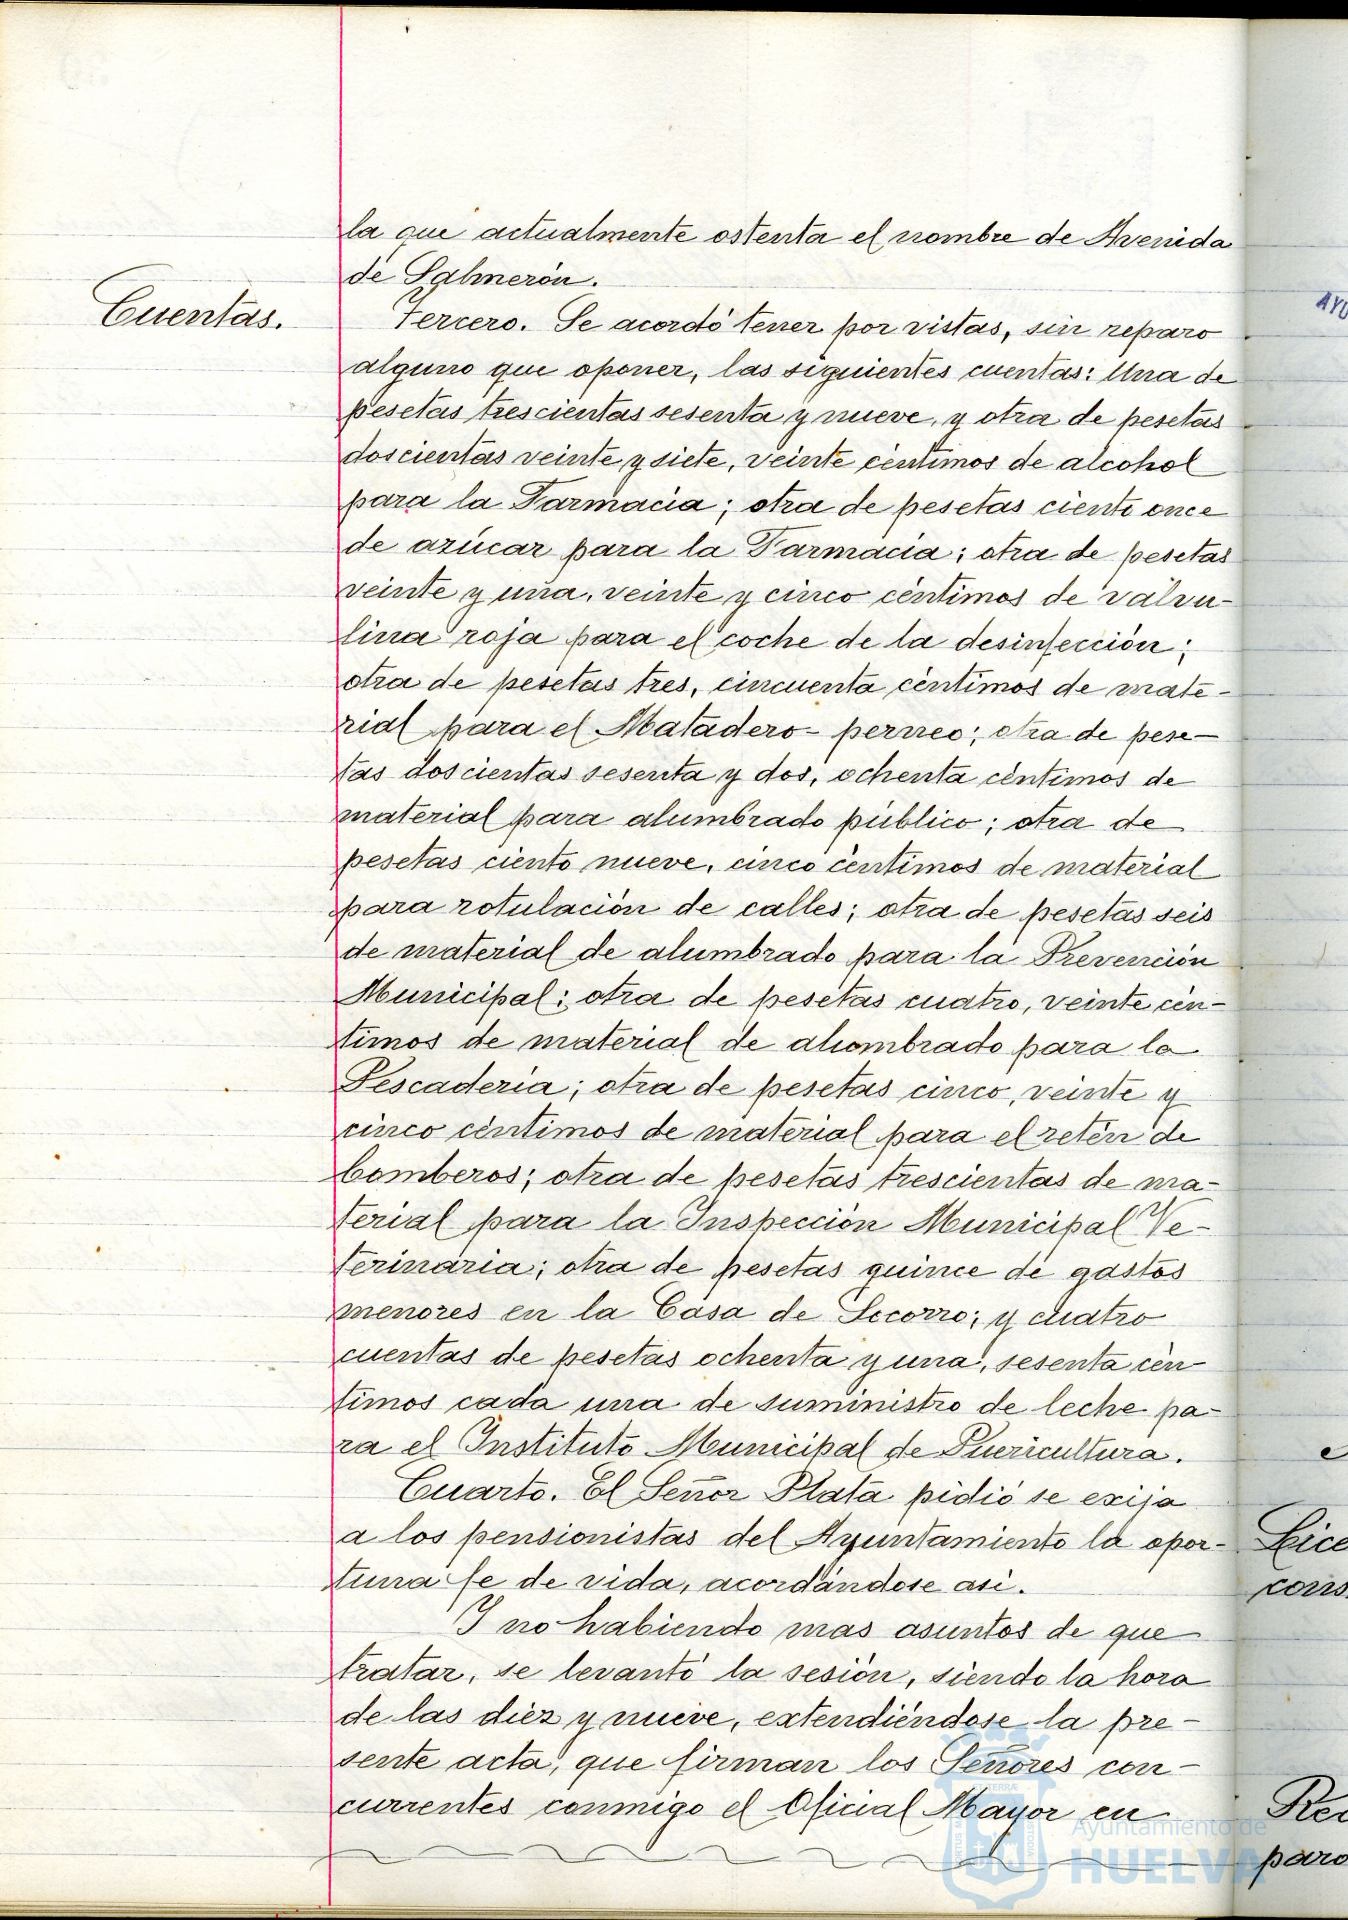 la que actualmente ostenta el nombre de Avenida
de Salmerón.
Cuentas.
Tercero. Se acordó tener por vistas, sin reparo
alguno que oponer, las siguientes cuentas: Una de
pesetas trescientas sesenta y nueve, y otra de pesetas
doscientas veinte y siete, veinte céntimos de alcohol
para la Farmacia; otra de pesetas ciento once
de azúcar para la Farmacia; otra de pesetas
veinte y una, veinte y cinco céntimos de valvu-
lina roja para el coche de la desinfección;
otra de pesetas tres, cincuenta céntimos de mate-
rial para el Matadero-perneo; otra de pese-
tas doscientas sesenta y dos, ochenta céntimos de
material para alumbrado público; otra de
pesetas ciento nueve, cinco céntimos de material
para rotulación de calles; otra de pesetas seis
de material de alumbrado para la Prevención
Municipal; otra de pesetas cuatro, veinte cén-
timos de material de alumbrado para la
Pescadería; otra de pesetas cinco, veinte y
cinco céntimos de material para el retén de
bomberos; otra de pesetas trescientas de ma-
terial para la Inspección Municipal Ve-
terinaria; otra de pesetas quince de gastos
menores en la Casa de Socorro; y cuatro
cuentas de pesetas ochenta y una, sesenta cén-
timos cada una de suministro de leche pa-
ra el Instituto Municipal de Puericultura.
Cuarto. El Señor Plata pidió se exija
a los pensionistas del Ayuntamiento la opor-
tuna fe de vida, acordándose así.
Y no habiendo mas asuntos de que
tratar, se levantó la sesión, siendo la hora
de las diez y nueve, extendiéndose la pre-
sente acta, que firman los Señores con-
currentes conmigo el Oficial Mayor en
Ayuntamiento de
HUELVA
AYU
Lice
cons
Rec
paro